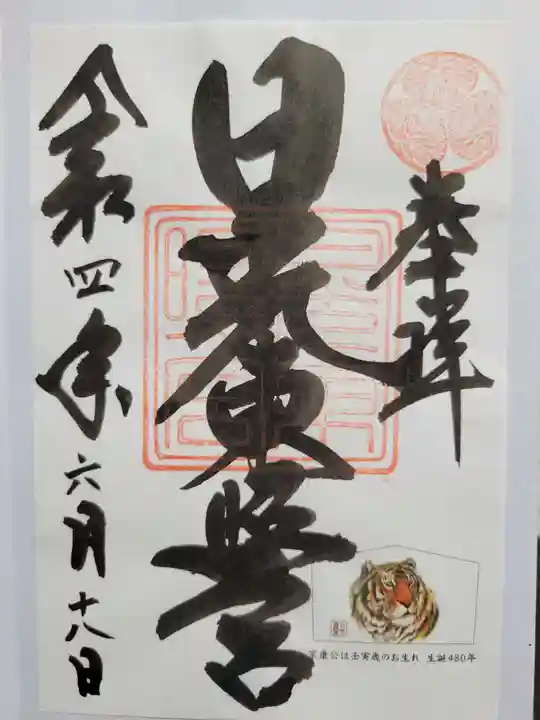 奉拝
日光東照宮
令和四年六月十八日
家康公は壬寅歳のお生れ 生誕480年